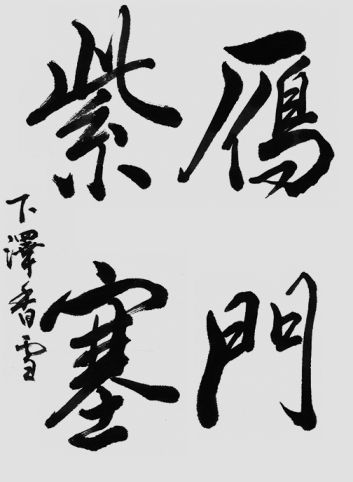 雁門
紫塞
下澤香雪